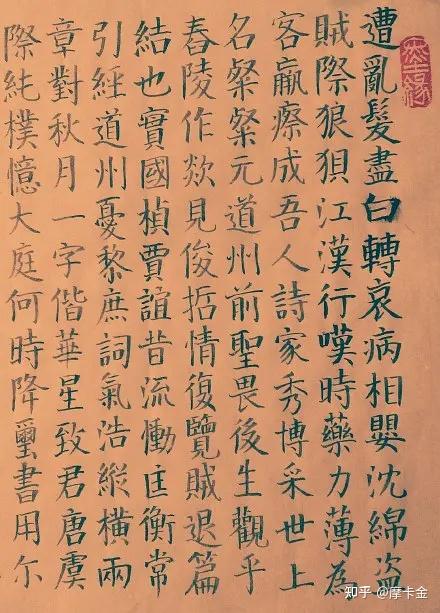 遭亂髮盡白轉衰病相嬰沈綿盜
賊際狼狽江漢行嘆時藥力薄為
客羸瘵成吾人詩家秀博采世上
名粲粲元道州前聖畏後生觀乎
舂陵作欻見俊哲情復覽賊退篇
結也實國楨賈誼昔流慟匡衡常
引經道州憂黎庶詞氣浩縱橫兩
章對秋月一字偕華星致君唐虞
際純樸憶大庭何時降璽書用尔
知乎 @摩卡金